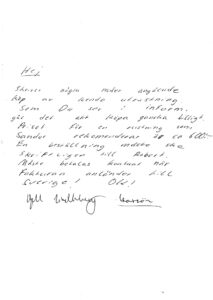 Hej
Skriver några rader angående
köp av kendo utrustning
Som Du ser i inform.
går det att köpa ganska billigt.
Priset för en rustning som
Sandor rekomenderar är ca
En beställning måste ske
till Robert.
Måste betalas kontant när
Fakturan anländer till
Sverige! Obs!
Kjell